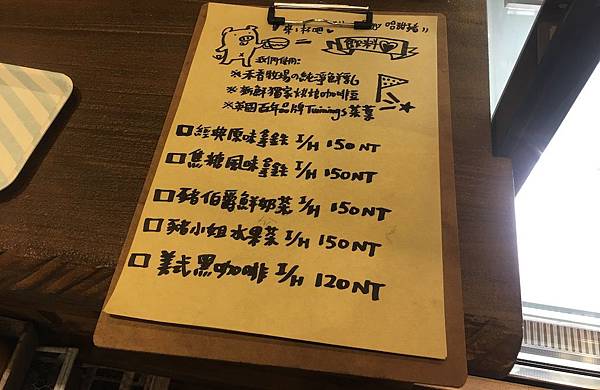 來杯吧♥ 哈甜豬))
= 飲料♥
我們使用:
※禾香牧場の純淨鮮乳
※新鮮獨家烘焙咖啡豆
※英國百年品牌Twinings茶葉
□經典原味拿鐵 I/H 150 NT
□焦糖風味拿鐵 I/H 150NT
□豬伯爵鮮奶茶 I/H 150NT
□豬小姐水果茶 I/H 150NT
□美式黑咖啡 I/H 120NT